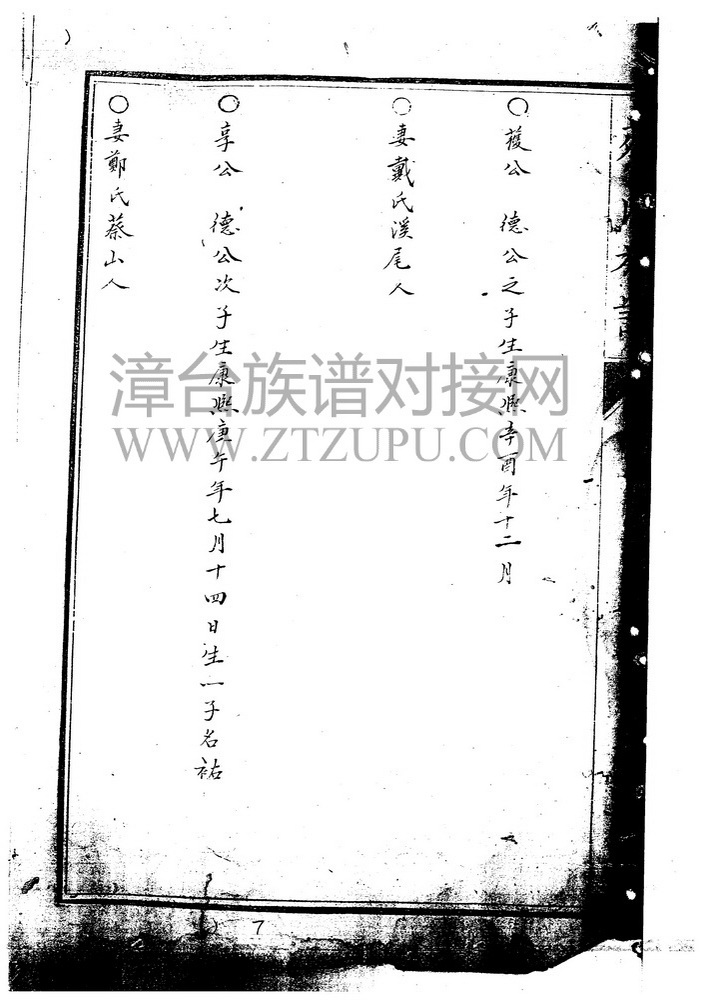 ○葰公　德公之子生康熙辛酉年十二月
○妻戴氏溪尾人
○享公　德公次子生康熙庚午年七月十四日生一子名祐
○妻鄭氏蔡山人
漳台族谱对接网
WWW.ZTZUPU.COM
7